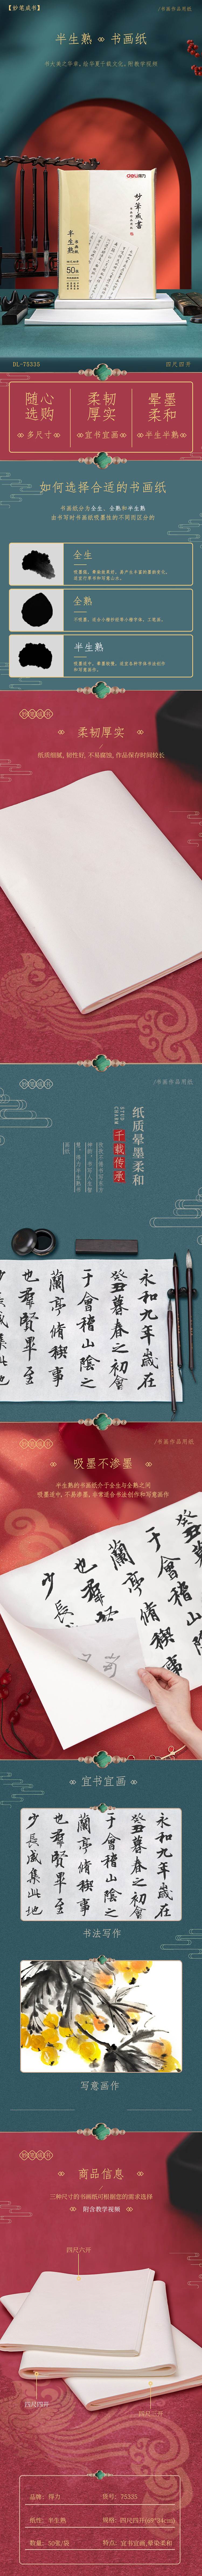 【妙笔成书】
/书画作品用纸
半生熟 书画纸
书大美之华章，绘华夏千载文化，附教学视频
deli得力
妙筆成書
半生熟
50张
DL-75335
四尺四开
随心选购
多尺寸
柔韧厚实
宜书宜画
晕墨柔和
半生半熟
如何选择合适的书画纸
书画纸分为全生、全熟和半生熟
由书写时书画纸吸墨性的不同而区分的
全生
全熟
半生熟
妙笔成书
柔韧厚实
纸质细腻，韧性好，不易腐蚀，作品保存时间较长
妙笔成书
/书画作品用纸
纸质晕墨柔和
千载传承
永和九年歲在
癸丑暮春之初會
于會稽山陰之
蘭亭脩禊事
也羣賢畢至
妙笔成书
/书画作品用纸
吸墨不渗墨
半生熟的书画纸介于全生与全熟之间
吸墨适中，不易渗墨，非常适合书法创作和写意画作
癸丑
于會稽山
蘭亭脩禊事
也羣
少長
宜书宜画
永和九年歲在
癸丑暮春之初會
于會稽山陰之
蘭亭脩禊事
也羣賢畢至
少長咸集此地
书法写作
写意画作
妙笔成书
商品信息
三种尺寸的书画纸可根据您的需求选择
附含教学视频
四尺八开
四尺四开
四尺三开
品牌：得力
货号：75335
纸性：半生熟
规格：四尺四开(69*34cm)
数量：50张/袋
特点：宜书宜画,晕染柔和